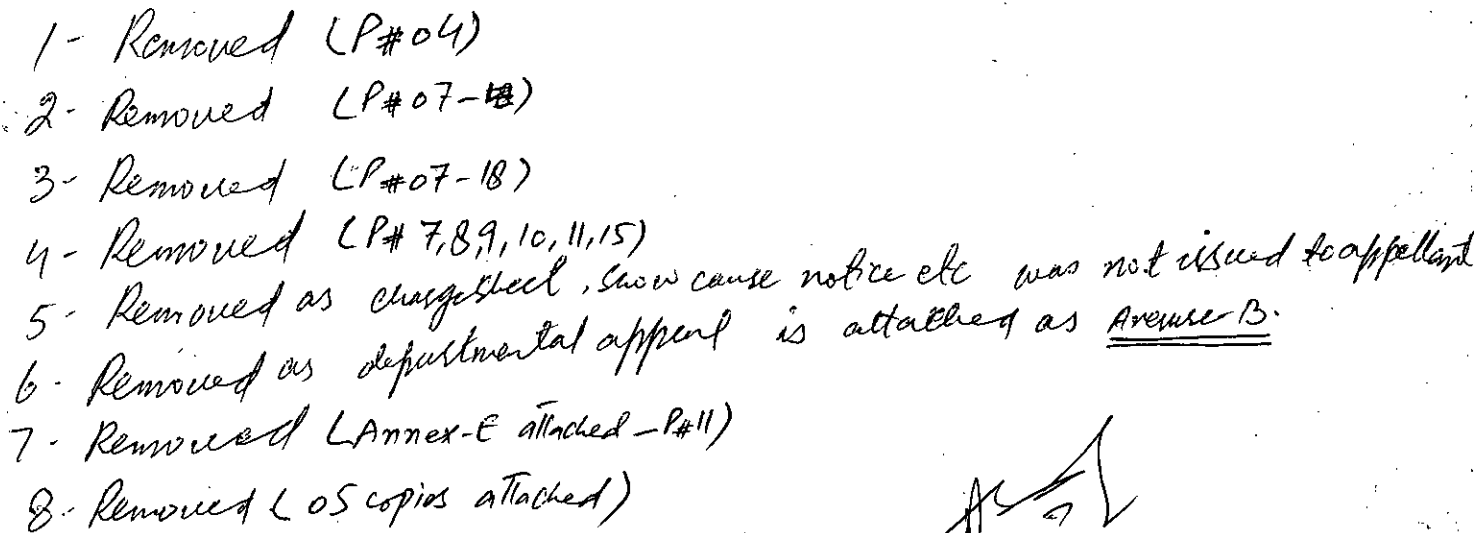 1- Removed (P#04)
2- Removed (P#07-18)
3- Removed (P#07-18)
4- Removed (P# 7,8,9,10,11,15)
5- Removed as chargesheet, show cause notice etc was not issued to appellant
6- Removed as departmental appeal is attached as Anexure-B.
7- Removed (Annex-E attached - P#11)
8- Removed (05 copies attached)